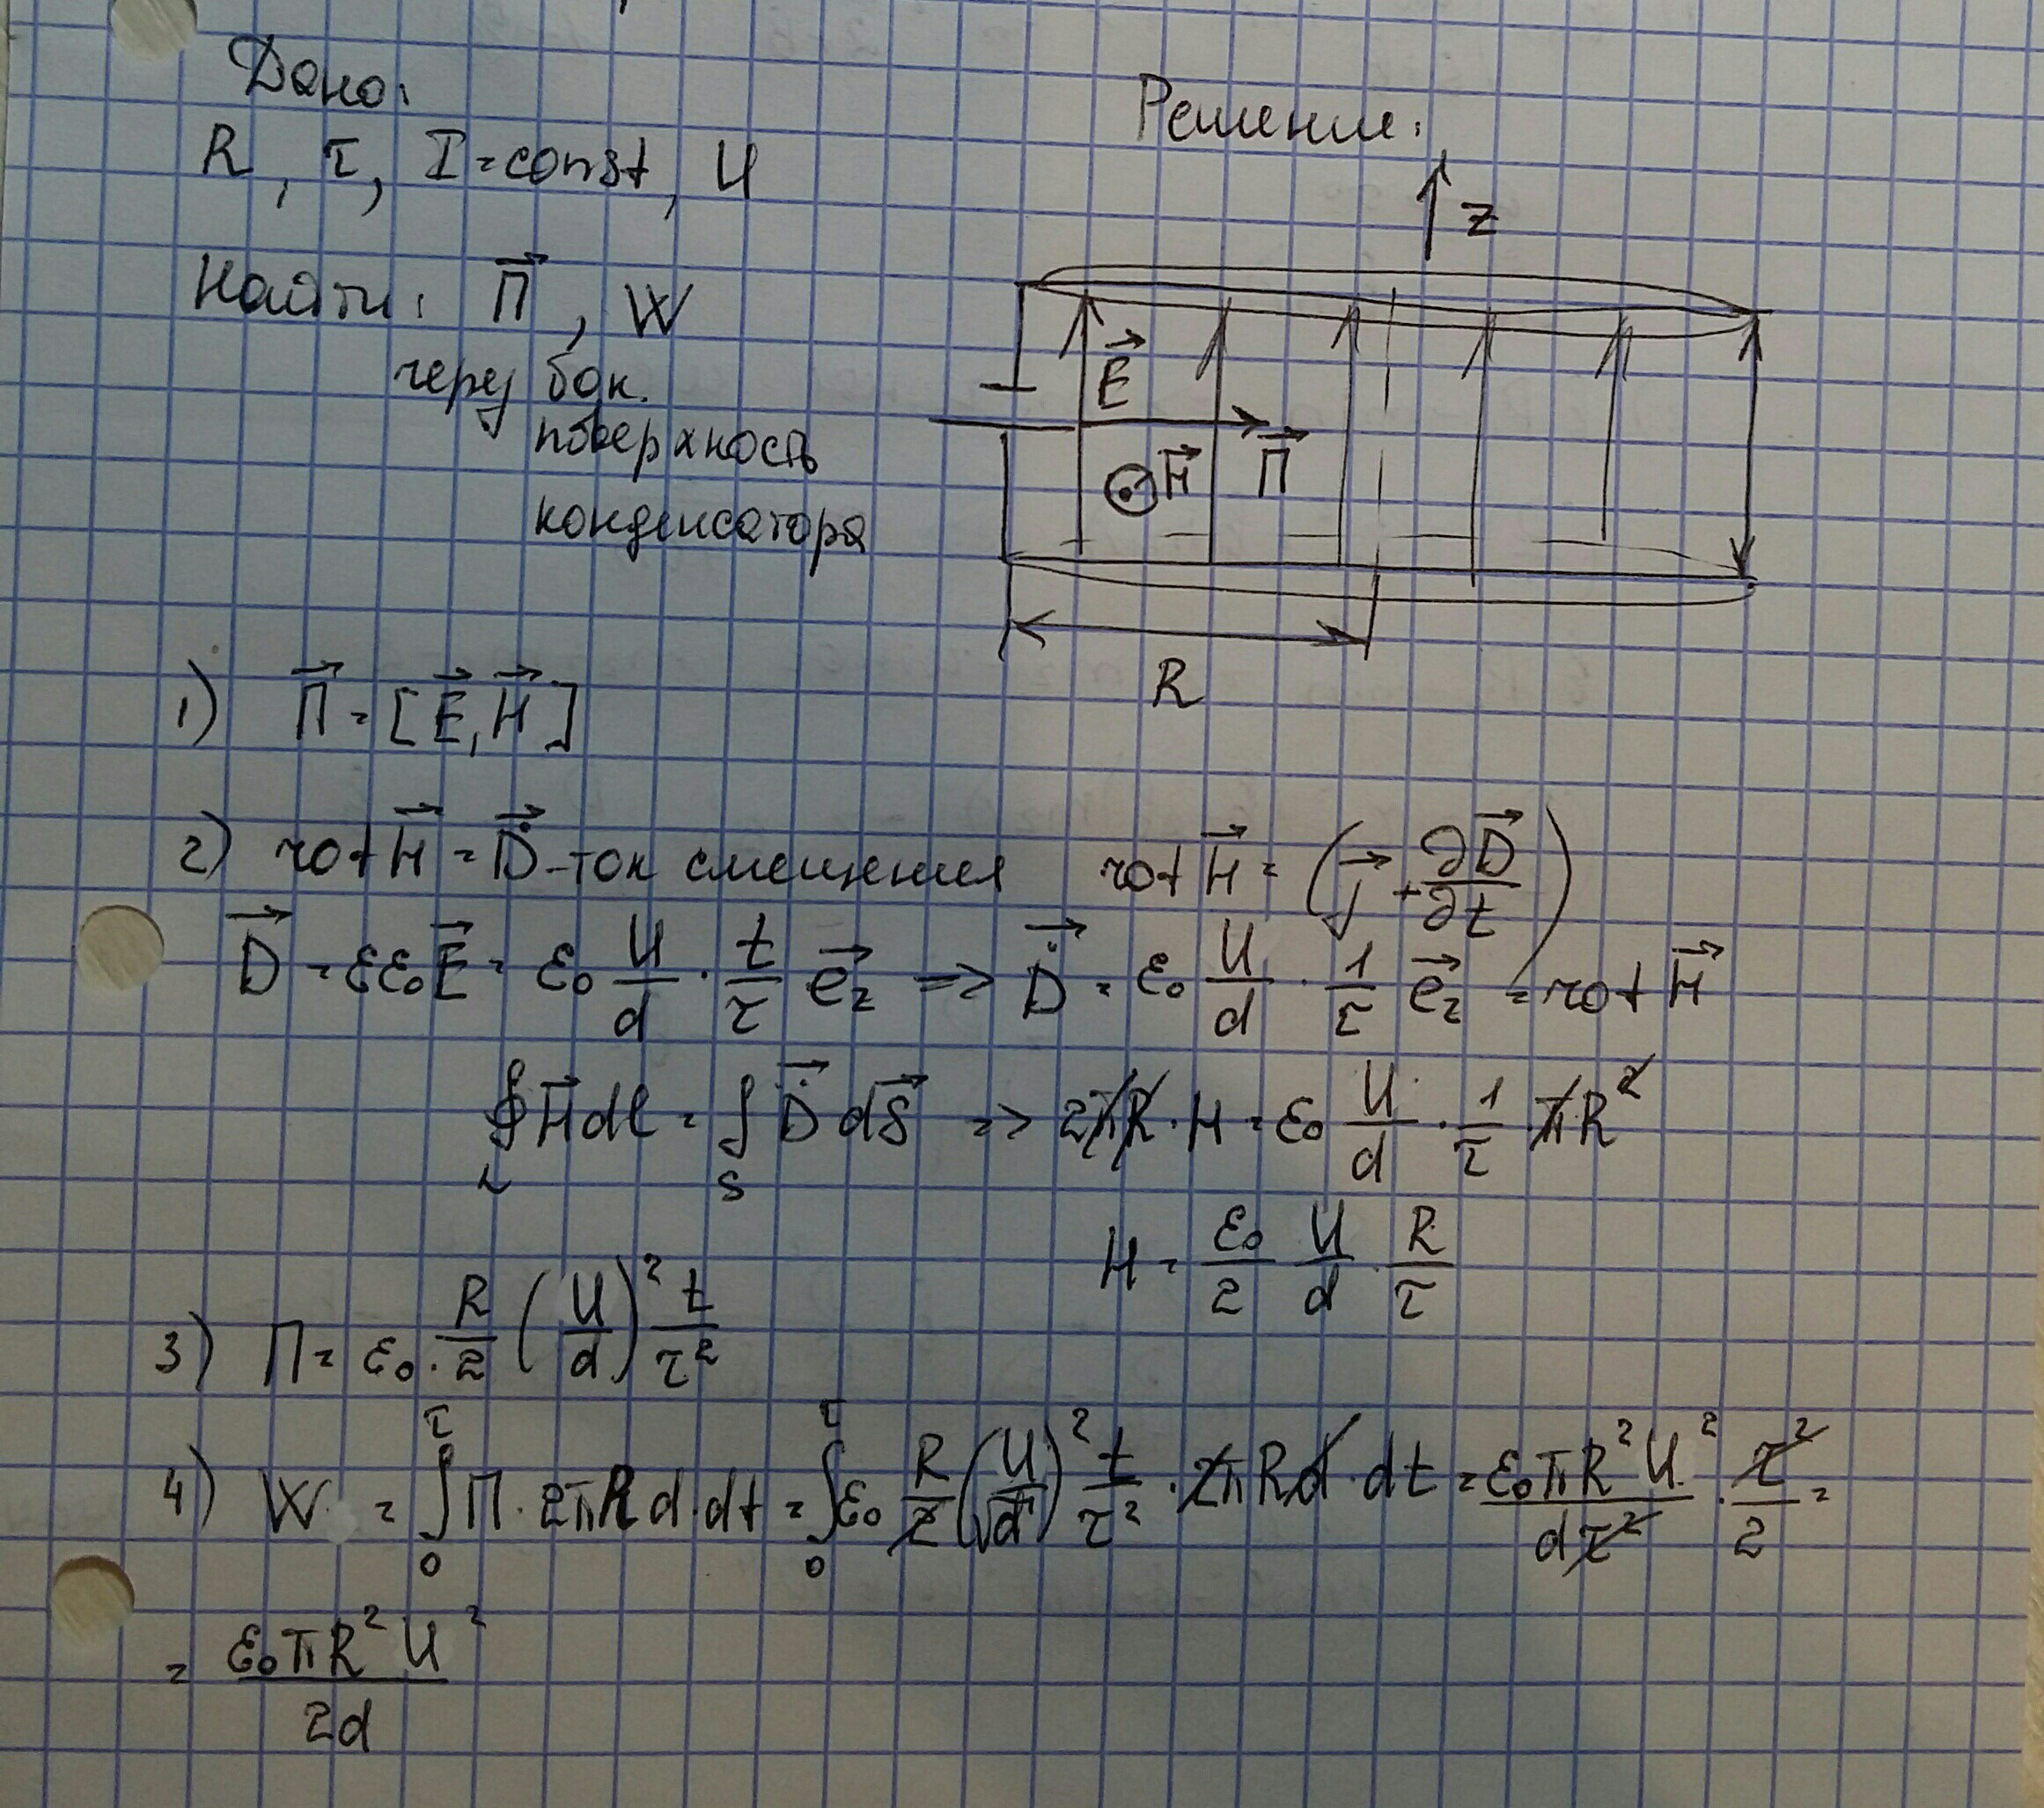 Дано:
R, τ, I=const, U
Найти: П⃗, W
через бок.
поверхность
конденсатора
Решение:
z
E⃗
H⃗ П⃗
R
1) П⃗ = [E⃗, H⃗]
2) rot H⃗ = D⃗̇ - ток смещения rot H⃗ = (j⃗ + ∂D⃗/∂t)
D⃗ = εε₀E⃗ = ε₀ U/d · t/τ e⃗z => D⃗̇ = ε₀ U/d · 1/τ e⃗z = rot H⃗
∮_L H⃗dl = ∫_S D⃗̇ dS⃗ => 2πR·H = ε₀ U/d · 1/τ · πR²
H = ε₀/2 U/d · R/τ
3) П = ε₀ · R/2 (U/d)² t/τ²
4) W = ∫₀^τ П · 2πRd · dt = ∫₀^τ ε₀ R/2 (U/d)² t/τ² · 2πRd · dt = ε₀πR²U²/dτ² · τ²/2 =
= ε₀πR²U²/2d